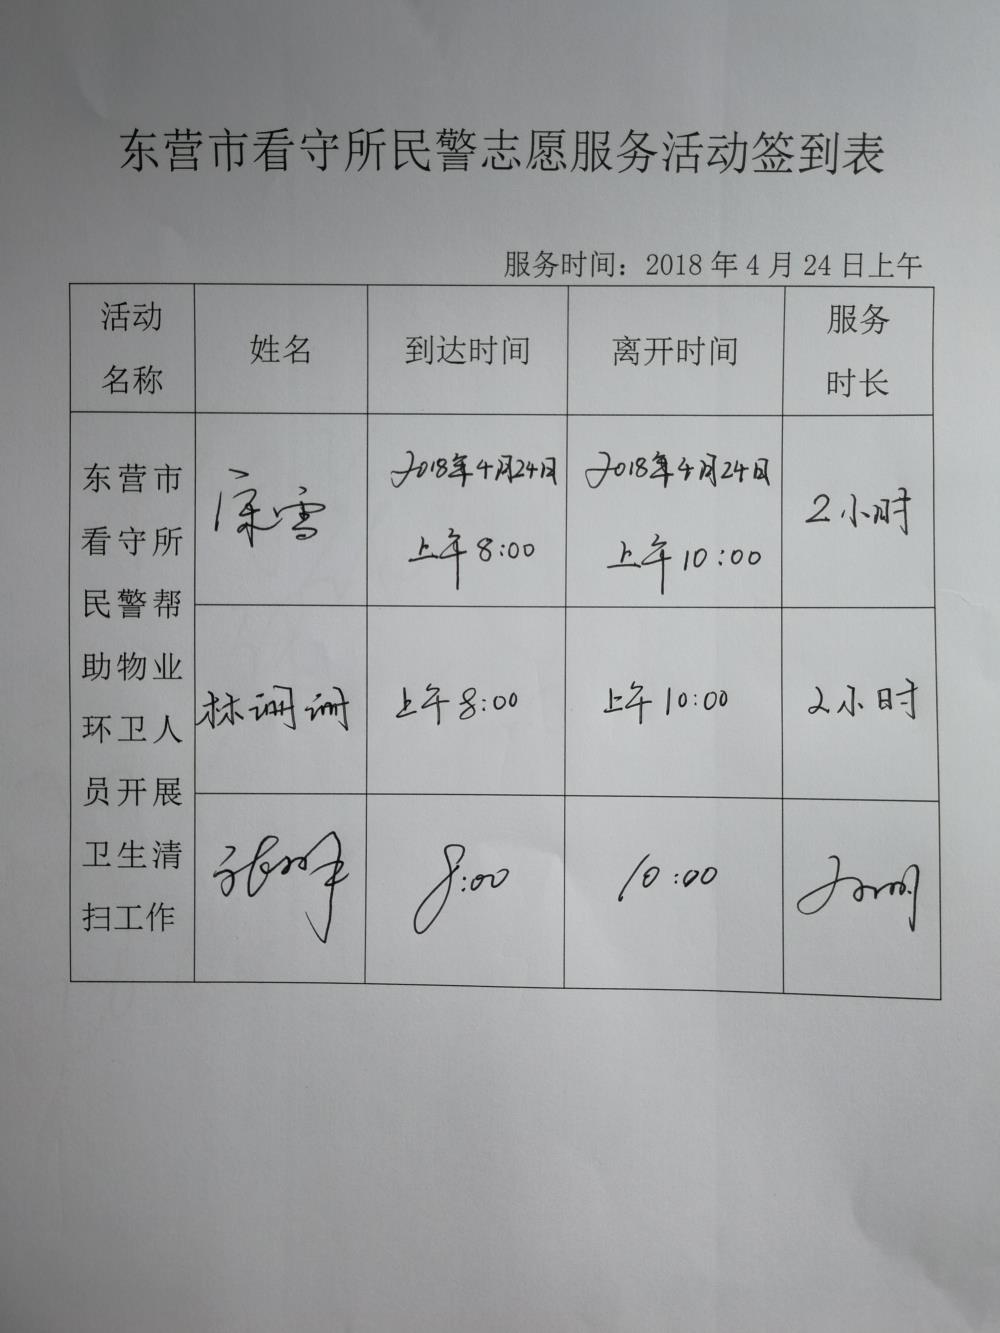 东营市看守所民警志愿服务活动签到表
服务时间：2018年4月24日上午
活动
名称
姓名
到达时间
离开时间
服务
时长
东营市
看守所
民警帮
助物业
环卫人
员开展
卫生清
扫工作
雪
2018年4月24日
上午8:00
2018年4月24日
上午10:00
2小时
林珊珊
上午8:00
上午10:00
2小时
8:00
10:00
2小时